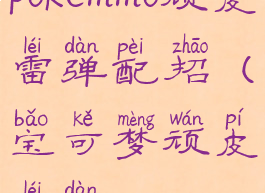 pokemmo顽皮
léi dàn pèi zhāo
雷弹配招（
bǎo kě mèng wán pí
宝可梦顽皮
léi dàn